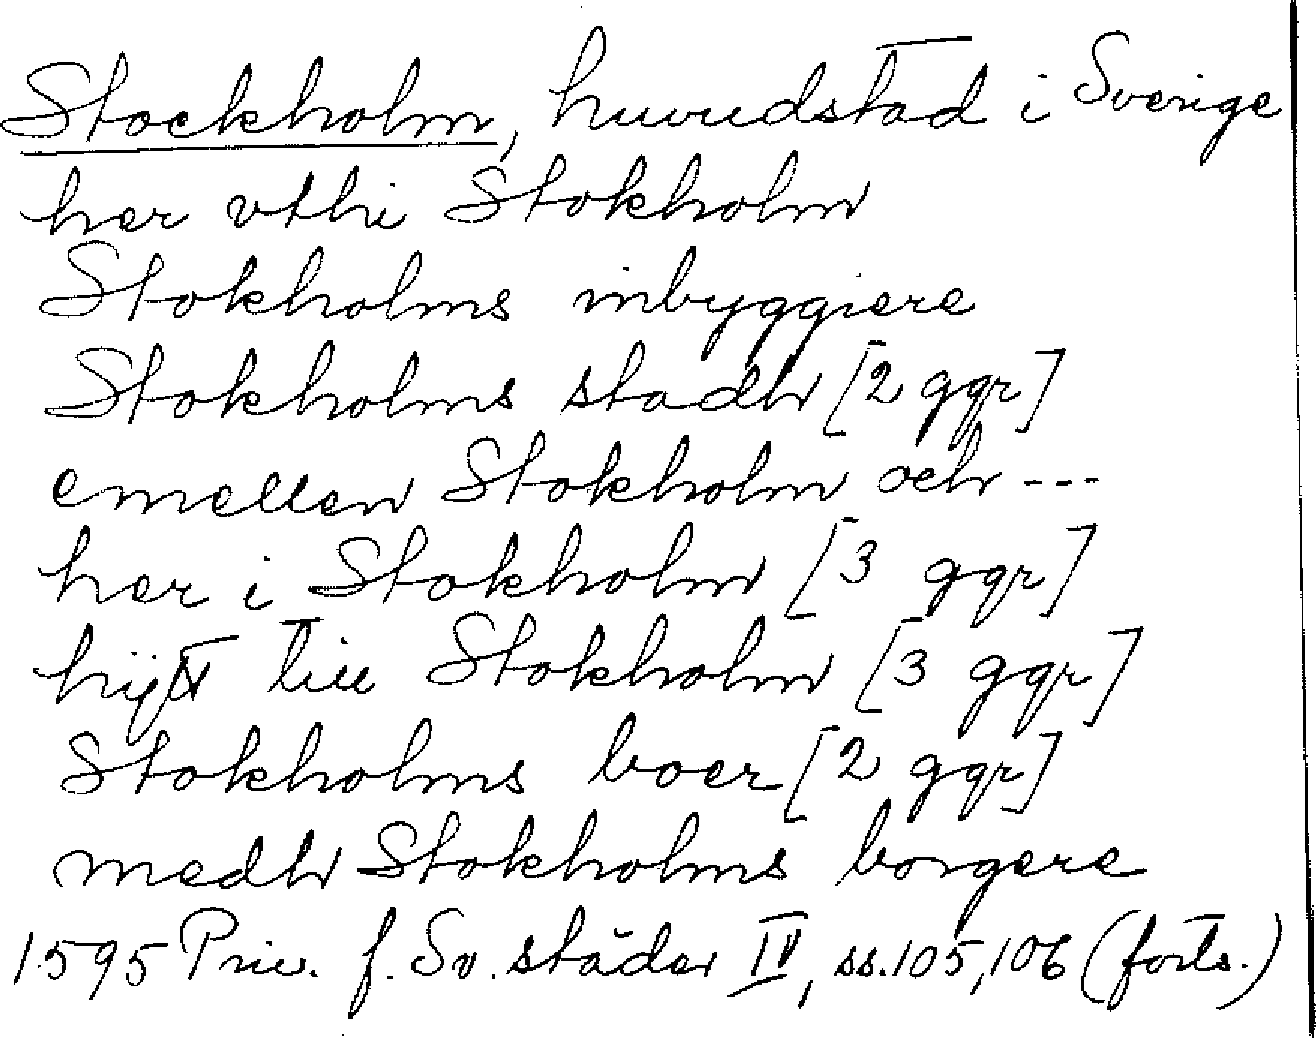 Stockholm, huvudstad i Sverige
her vthi Stokholm
Stokholms inbyggiere
Stokholms stadh [2 ggr]
emellen Stokholm och ---
her i Stokholm [3 ggr]
hijtt till Stokholm [3 ggr]
Stokholms boer [2 ggr]
medh Stokholms borgere
1595 Priv. f. Sv. städer IV, ss. 105, 106 (forts.)